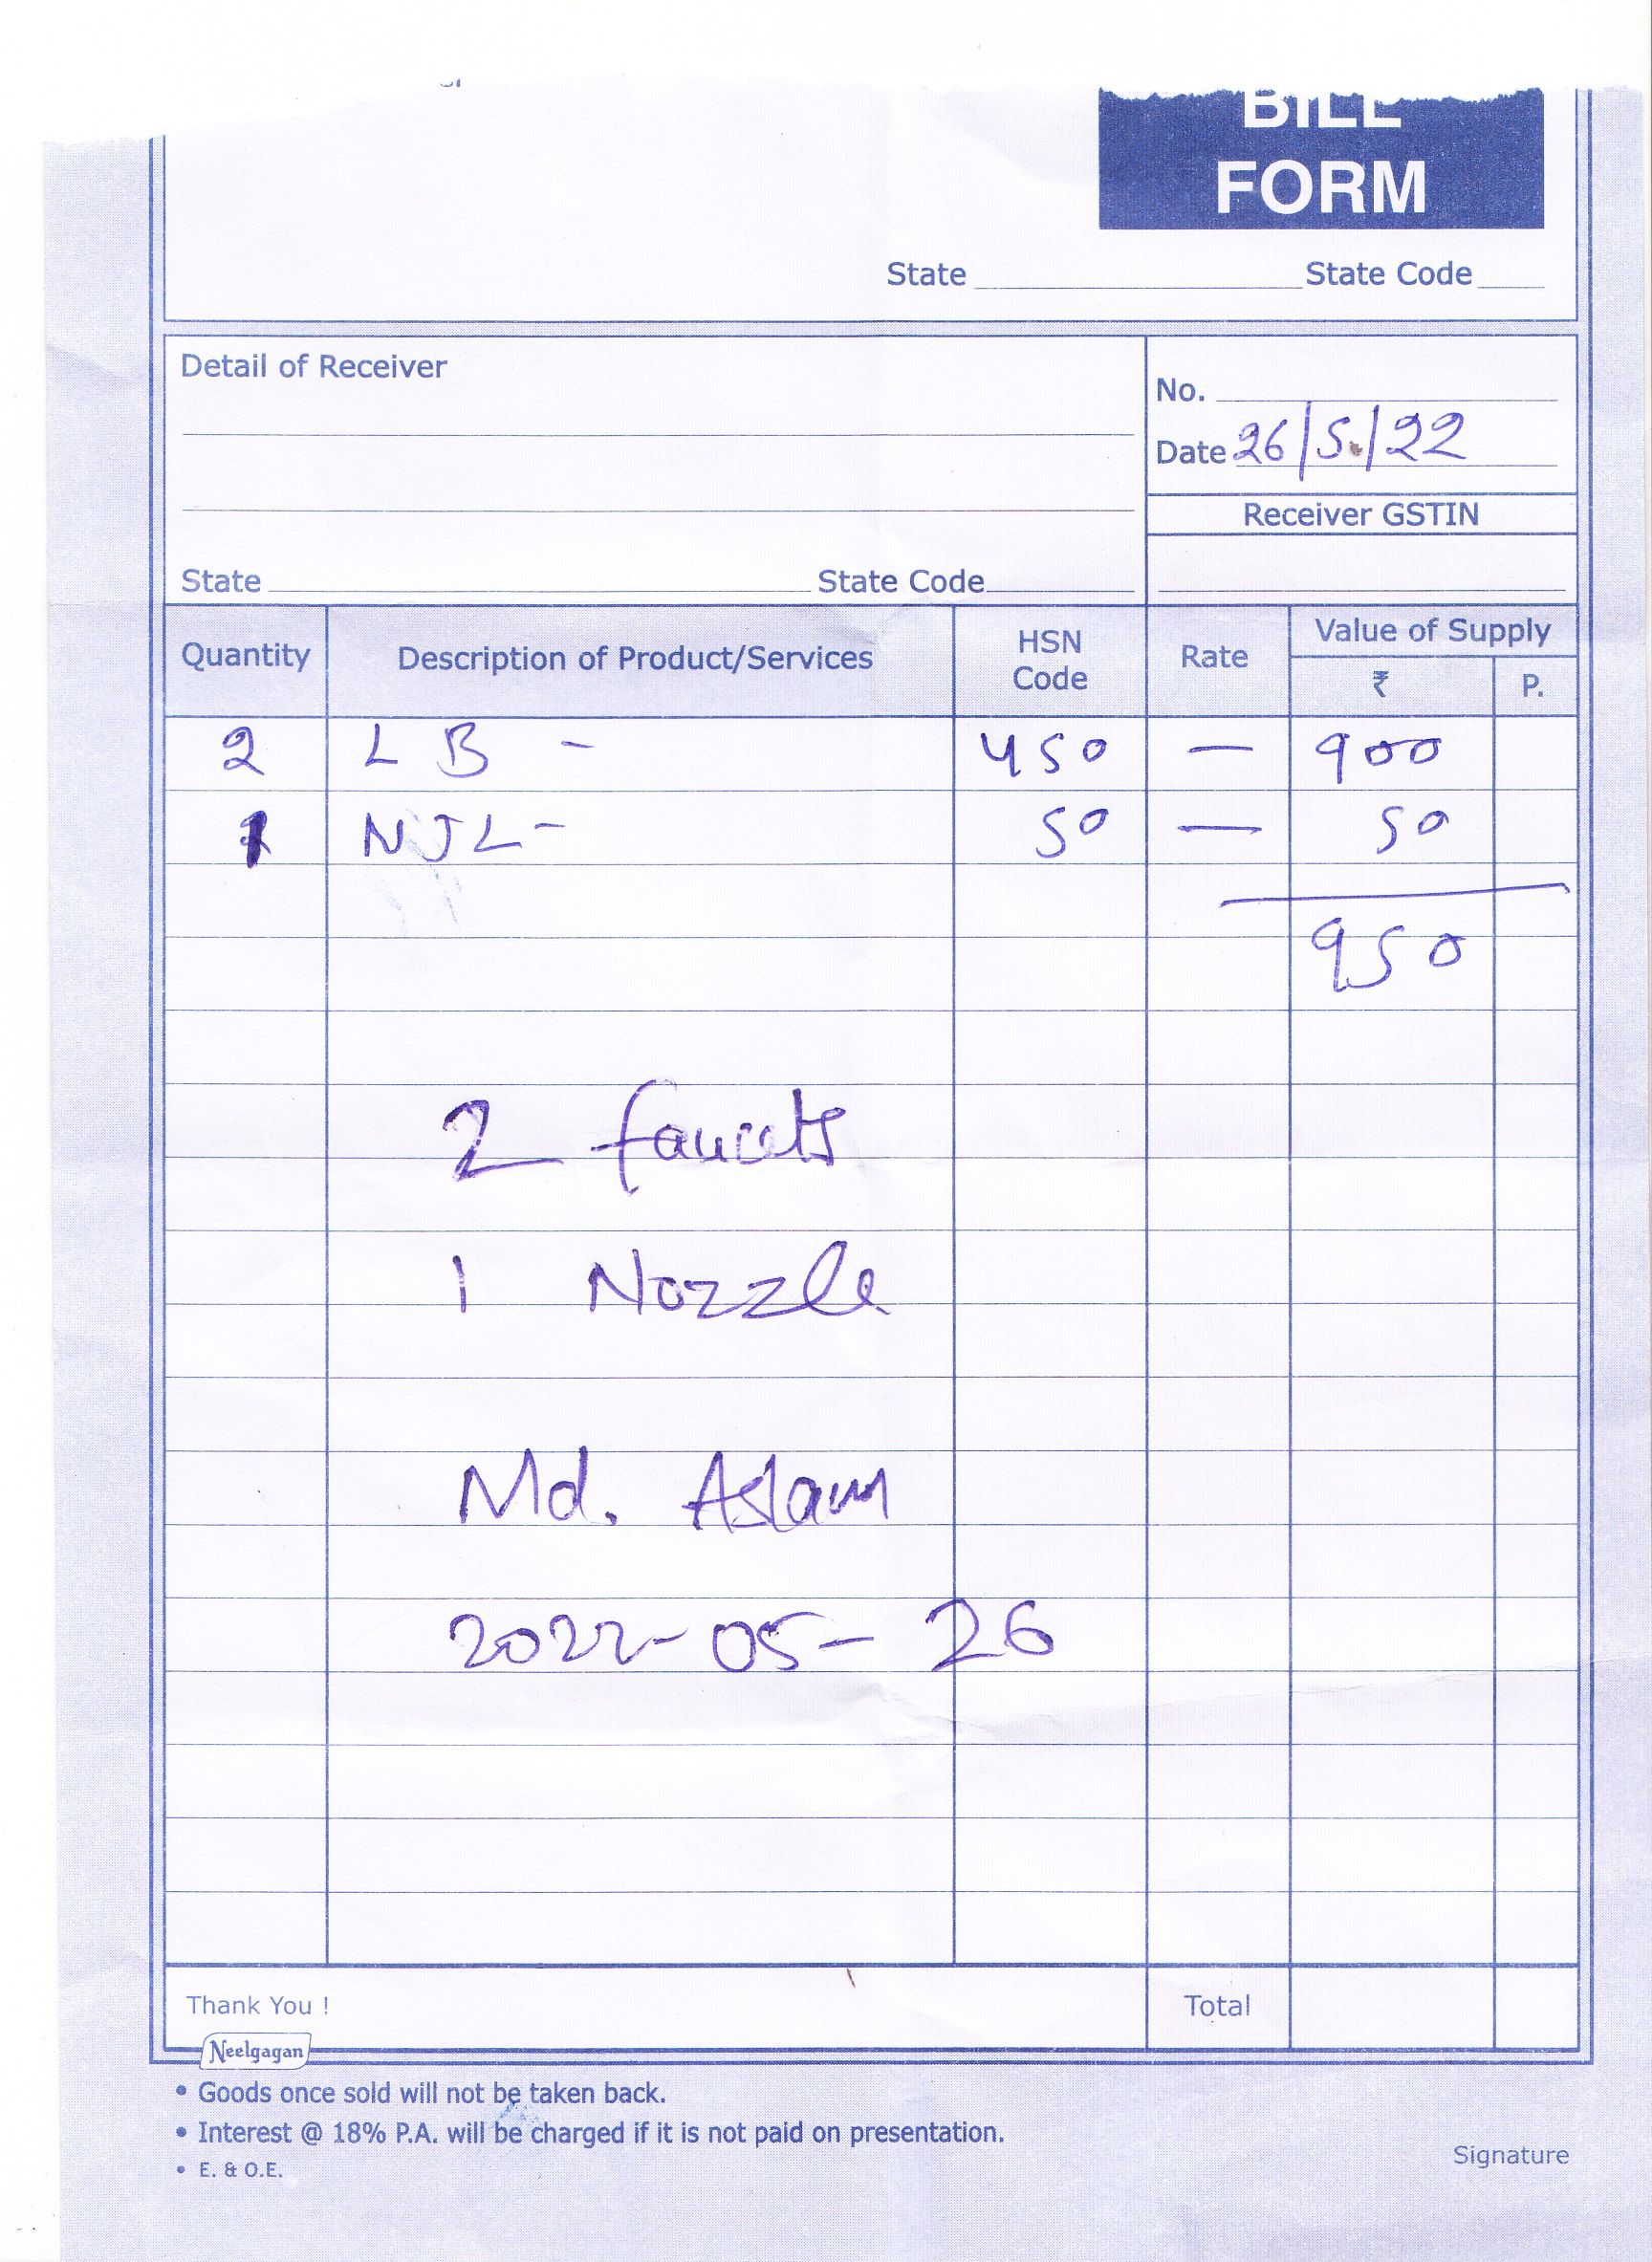 BILL
FORM
State State Code
Detail of Receiver
No.
Date 26/5/22
Receiver GSTIN
State State Code
Quantity Description of Product/Services HSN Code Rate Value of Supply
₹ P.
2 L B - 450 — 900
1 NJL - 50 — 50
950
2 faucets
1 Nozzle
Md. Aslam
2022-05-26
Thank You ! Total
Neelgagan
• Goods once sold will not be taken back.
• Interest @ 18% P.A. will be charged if it is not paid on presentation.
• E. & O.E.
Signature